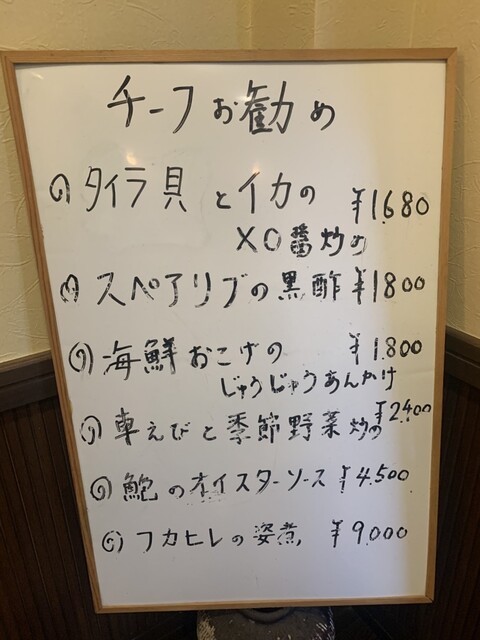 チーフお勧め
タイラ貝とイカの ¥1680
XO醤炒め
スペアリブの黒酢 ¥1800
海鮮おこげの ¥1.800
じゅうじゅうあんかけ
車えびと季節野菜炒め ¥2400
鮑のオイスターソース ¥4.500
フカヒレの姿煮 ¥9.000